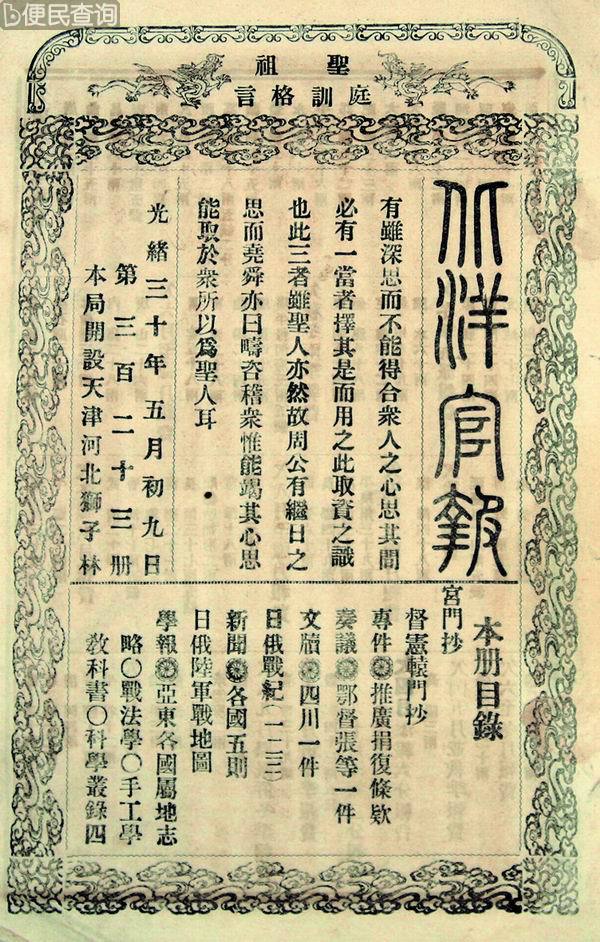 便民查询
聖祖
庭訓格言
北洋官報
有雖深思而不能得合衆人之心思其間
必有一當者擇其是而用之此取資之識
也此三者雖聖人亦然故周公有繼日之
思而堯舜亦曰疇咨稽衆惟能竭其心思
能取於衆所以爲聖人耳
光緒三十年五月初九日
第三百二十三册
本局開設天津河北獅子林
本册目錄
宮門抄
督憲轅門抄
專件◎推廣捐復條欵
奏議◎鄂督張等一件
文牘◎四川一件
日俄戰紀(一二三)
新聞◎各國五則
日俄陸軍戰地圖
學報◎亞東各國屬地志
略○戰法學○手工學
敎科書○科學叢錄四